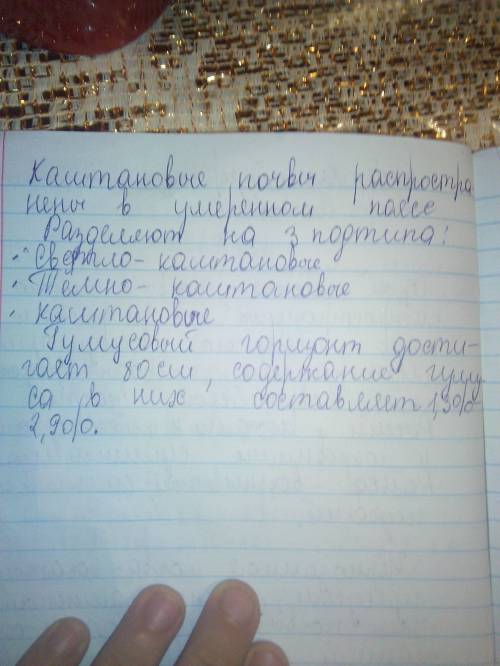 Каштановые почвы распростра
нены в умеренном паесе
Разделяют на 3 подтипа:
· Светло-каштановые
· Темно-каштановые
· каштановые
Гумусовый горизонт дости-
гает 80 см, содержание гуму
са в них составляет 1,9%
2,9%.